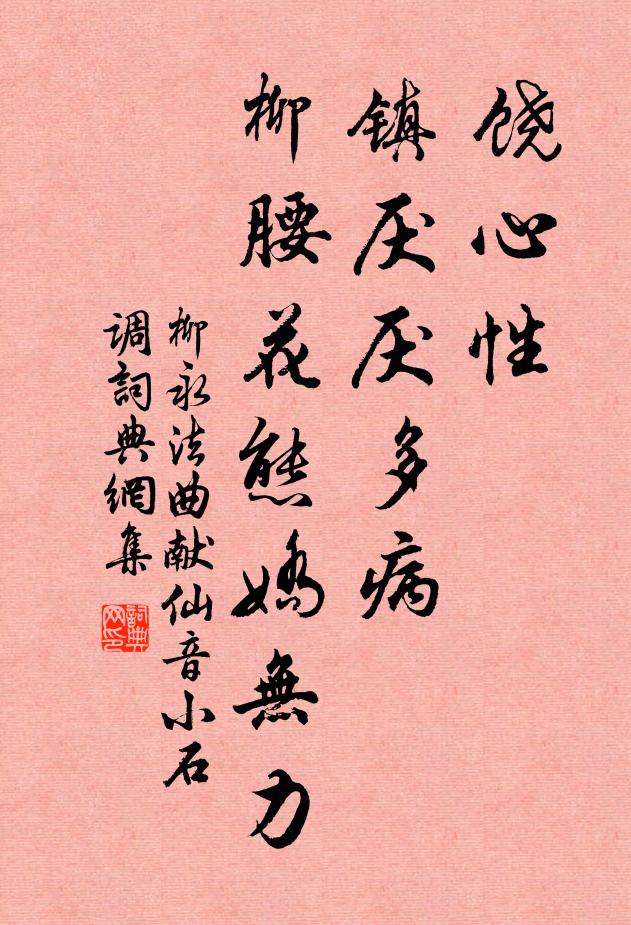 饶心性
镇厌厌多病
柳腰花態嬌無力
柳永法曲献仙音小石
调詞典網集
詞典
网印